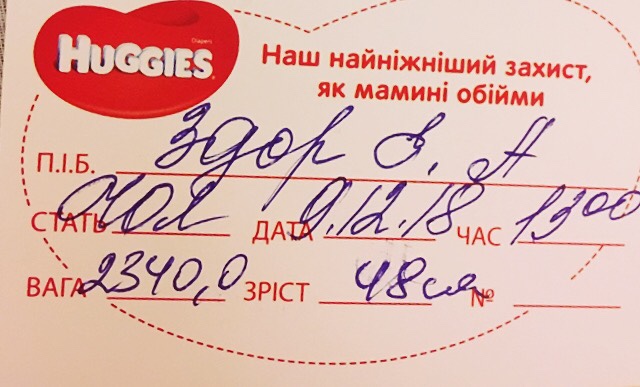 HUGGIES
Наш найніжніший захист,
як мамині обійми
П.І.Б. Здор І. А
СТАТЬ чол ДАТА 9.12.18 ЧАС 13 00
ВАГА 2340,0 ЗРІСТ 48см №